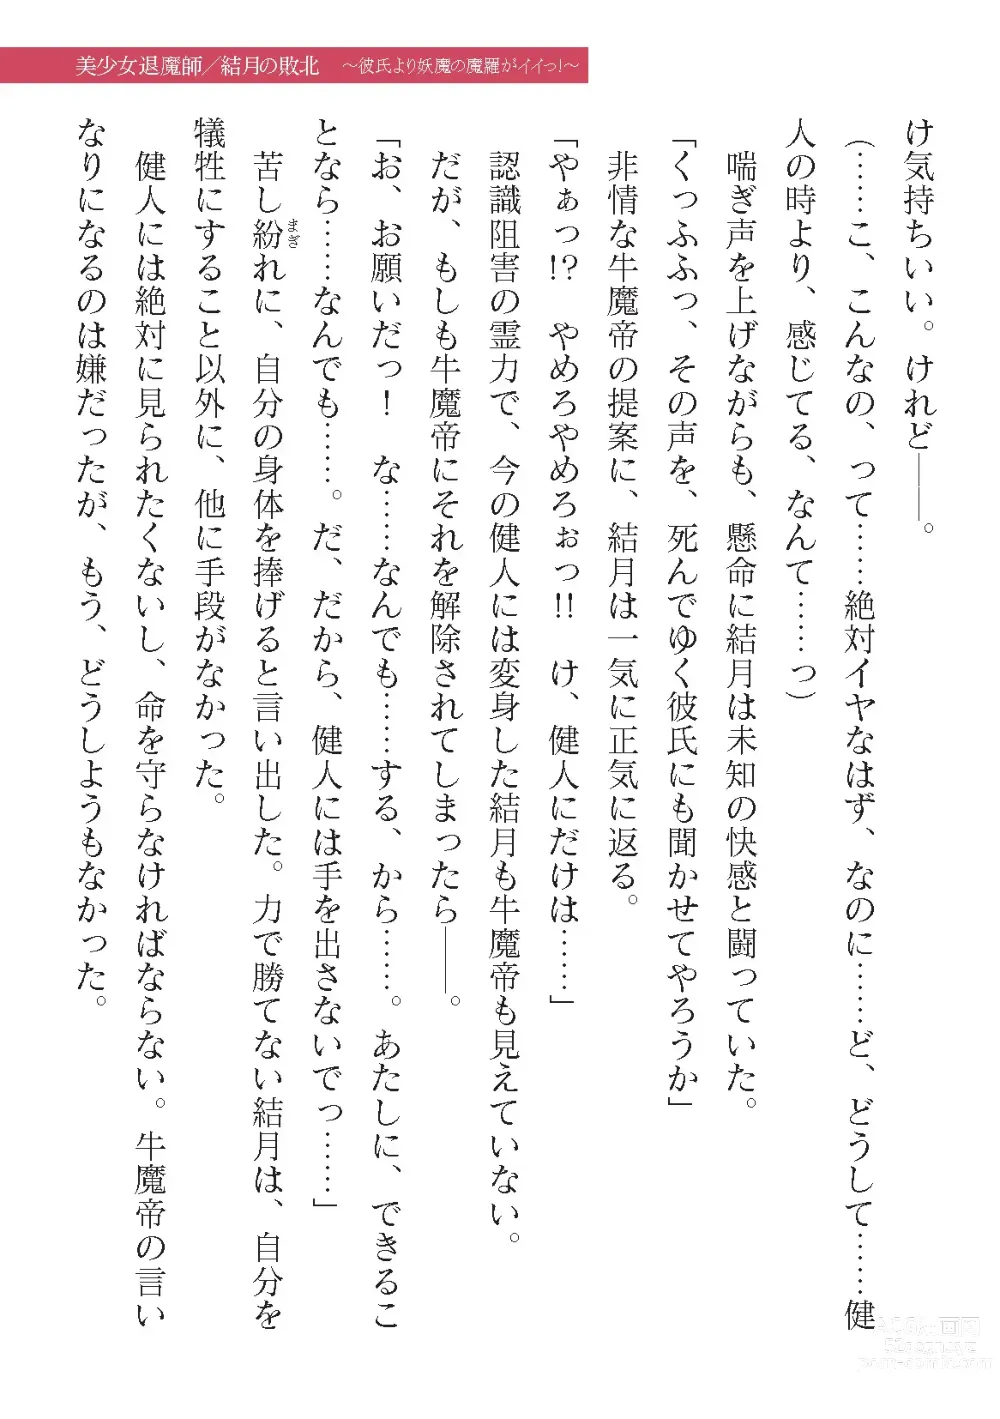 美少女退魔師／結月の敗北　～彼氏より妖魔の魔羅がイイっ!～
け気持ちいい。けれど――。
（……こ、こんなの、って……絶対イヤなはず、なのに……ど、どうして……健
人の時より、感じてる、なんて……っ）
喘ぎ声を上げながらも、懸命に結月は未知の快感と闘っていた。
「くっふふっ、その声を、死んでゆく彼氏にも聞かせてやろうか」
非情な牛魔帝の提案に、結月は一気に正気に返る。
「やぁっ!?　やめろやめろぉっ!!　け、健人にだけは……」
認識阻害の霊力で、今の健人には変身した結月も牛魔帝も見えていない。
だが、もしも牛魔帝にそれを解除されてしまったら――。
「お、お願いだっ！　な……なんでも……する、から……。あたしに、できるこ
となら……なんでも……。だ、だから、健人には手を出さないでっ……」
苦し紛まぎれに、自分の身体を捧げると言い出した。力で勝てない結月は、自分を
犠牲にすること以外に、他に手段がなかった。
健人には絶対に見られたくないし、命を守らなければならない。牛魔帝の言い
なりになるのは嫌だったが、もう、どうしようもなかった。